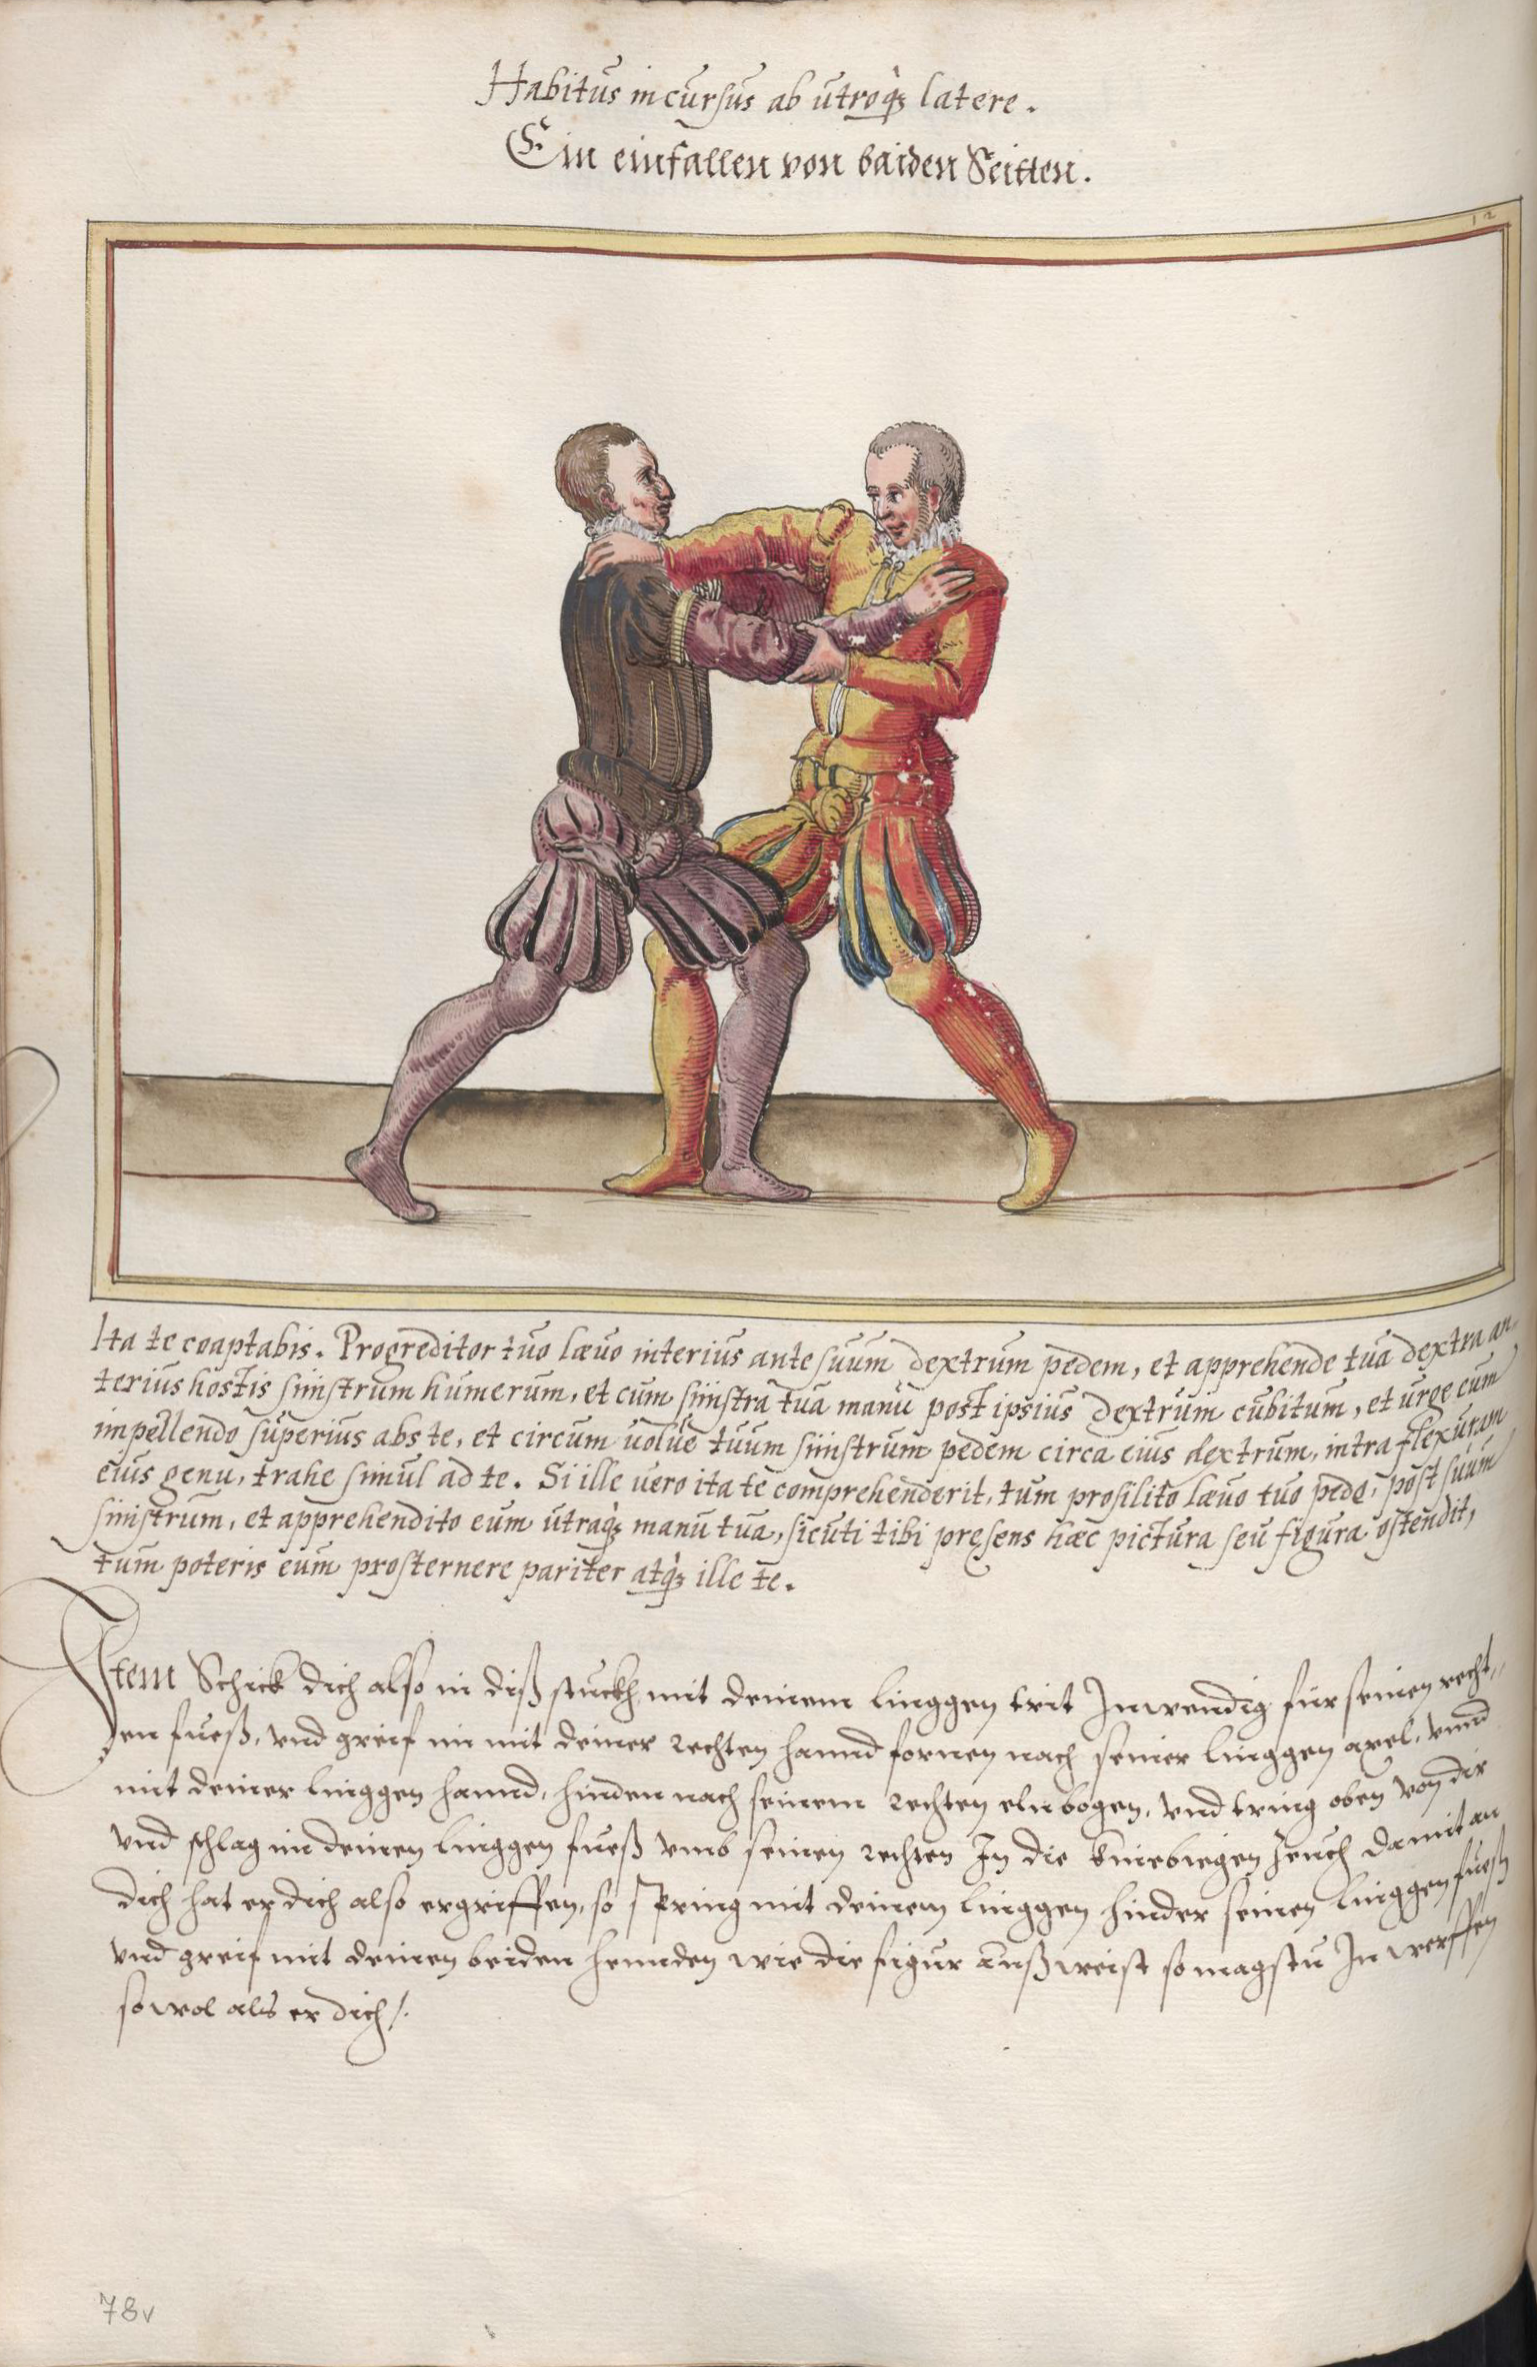 Habitus incursus ab utroqꝫ latere.
Ein einfallen von baiden Seitten.
12
Ita te coaptabis. Progreditor tuo lævo interius ante suum dextrum pedem, et apprehende tua dextra an
terius hostis sinistrum humerum, et cum sinistra tua manu post ipsius dextrum cubitum, et urge eum
impellendo superius abs te, et circum uolue tuum sinistrum pedem circa eius dextrum, intra flexuram
eius genu, trahe simul ad te. Si ille vero ita te comprehenderit, tum prosilito lævo tuo pede, post suum
sinistrum, et apprehendito eum utraqꝫ manu tua, sicuti tibi pręsens hæc pictura seu figura ostendit,
tum poteris eum prosternere pariter atqꝫ ille te.
Item Schick dich also in diß stuckh mit deinem linggen trit Inwendig für seinen recht„
en fueß, vnd greif im mit deiner rechten hannd fornen nach seiner linggen axel, vnnd
mit deiner linggen hannd, hinden nach seinem rechten elnbogen, vnd tring oben von dir
vnd schlag im deinen linggen fueß vmb seinen rechten In die kniebiegen zeuch damit an
dich hat er dich also ergriffen, so spring mit deinem linggen hinder seinen linggen fueß
vnd greif mit deinen beiden hennden wie die figur außweist so magstu In werffen
sowol als er dich /.
78v